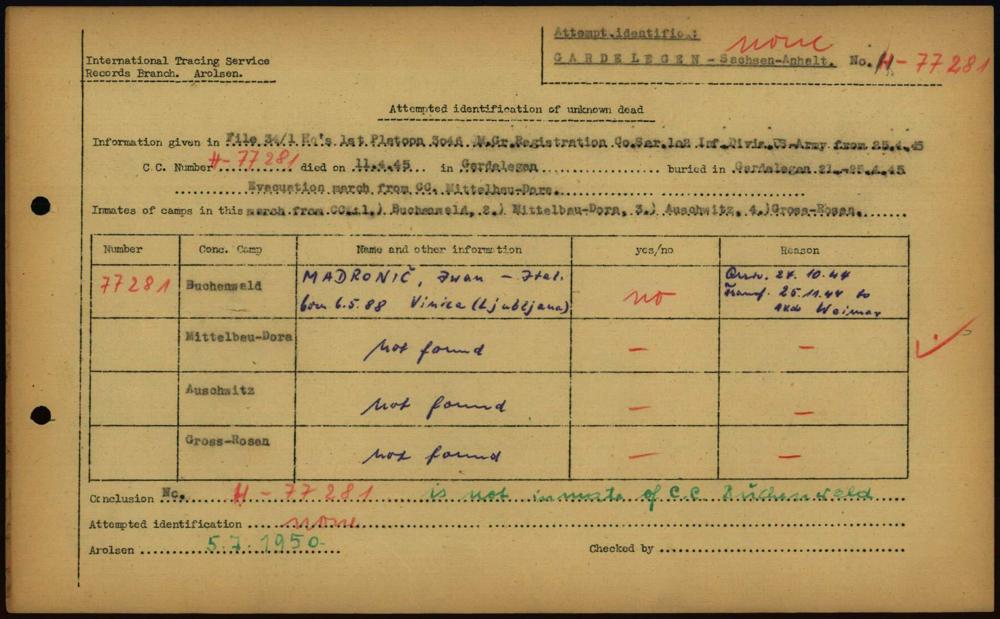 Attempt.identific.:
none
GARDELEGEN - Sachsen-Anhalt. No. H-77281
International Tracing Service
Records Branch. Arolsen.
Attempted identification of unknown dead
Information given in File 34/1 Hq's 1st Platoon 3046 .M.Gr.Registration Co.Ser.102 Inf.Divis.US-Army from 25.4.45
C.C. Number H-77281 died on 11.4.45 in Gardelegen buried in Gardelegen 21.-25.4.45
Evacuation march from CC. Mittelbau-Dora.
Inmates of camps in this march from CC: 1.) Buchenwald, 2.) Mittelbau-Dora, 3.) Auschwitz, 4.) Gross-Rosen.
Number Conc. Camp Name and other information yes/no Reason
77281 Buchenwald MADRONIČ, Ivan - Ital. no Arriv. 24.10.44
born 6.5.88 Vinica (Ljubljana) Transf. 25.11.44 to
Weimar
Mittelbau-Dora not found - -
Auschwitz not found - -
Gross-Rosen not found - -
Conclusion No. H-77281 is not inmate of C.C. Buchenwald
Attempted identification none
Arolsen 5.7.1950 Checked by